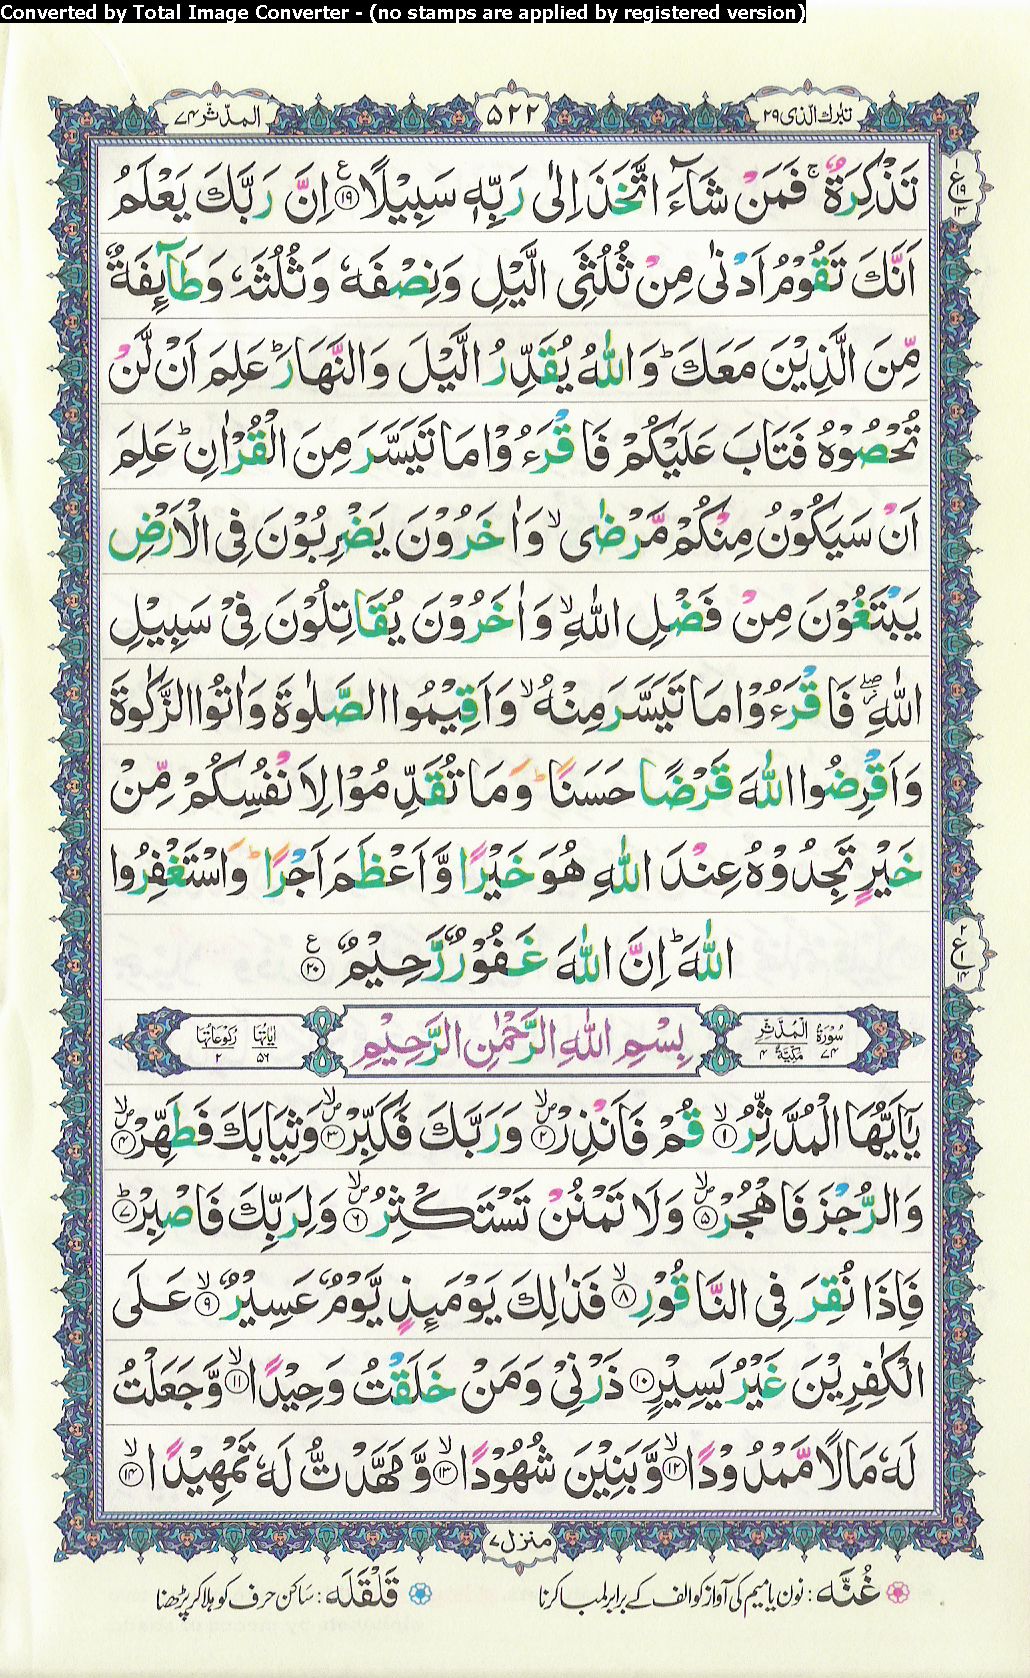 Converted by Total Image Converter - (no stamps are applied by registered version)
تبٰرك الذی ٢٩
٥٢٢
المدّثّر ٧٤
تَذْكِرَةٌ ۚ فَمَنْ شَآءَ اتَّخَذَ اِلٰى رَبِّهٖ سَبِيْلًا ﴿١٩﴾ ع اِنَّ رَبَّكَ يَعْلَمُ
اَنَّكَ تَقُوْمُ اَدْنٰى مِنْ ثُلُثَىِ الَّيْلِ وَنِصْفَهٗ وَثُلُثَهٗ وَطَآئِفَةٌ
مِّنَ الَّذِيْنَ مَعَكَ ؕ وَاللّٰهُ يُقَدِّرُ الَّيْلَ وَالنَّهَارَ ؕ عَلِمَ اَنْ لَّنْ
تُحْصُوْهُ فَتَابَ عَلَيْكُمْ فَاقْرَءُوْا مَا تَيَسَّرَ مِنَ الْقُرْاٰنِ ؕ عَلِمَ
اَنْ سَيَكُوْنُ مِنْكُمْ مَّرْضٰى ۙ وَاٰخَرُوْنَ يَضْرِبُوْنَ فِى الْاَرْضِ
يَبْتَغُوْنَ مِنْ فَضْلِ اللّٰهِ ۙ وَاٰخَرُوْنَ يُقَاتِلُوْنَ فِىْ سَبِيْلِ
اللّٰهِ ۖ فَاقْرَءُوْا مَا تَيَسَّرَ مِنْهُ ۙ وَاَقِيْمُوا الصَّلٰوةَ وَاٰتُوا الزَّكٰوةَ
وَاَقْرِضُوا اللّٰهَ قَرْضًا حَسَنًا ؕ وَمَا تُقَدِّمُوْا لِاَنْفُسِكُمْ مِّنْ
خَيْرٍ تَجِدُوْهُ عِنْدَ اللّٰهِ هُوَ خَيْرًا وَّاَعْظَمَ اَجْرًا ؕ وَاسْتَغْفِرُوا
اللّٰهَ ؕ اِنَّ اللّٰهَ غَفُوْرٌ رَّحِيْمٌ ﴿٢٠﴾ ع
سُوْرَةُ الْمُدَّثِّرِ مَكِّيَّةٌ ٧٤ ٤
بِسْمِ اللّٰهِ الرَّحْمٰنِ الرَّحِيْمِ
اٰيَاتُهَا ٥٦ رُكُوْعَاتُهَا ٢
يٰۤاَيُّهَا الْمُدَّثِّرُ ۙ﴿١﴾ قُمْ فَاَنْذِرْ ۙ﴿٢﴾ وَرَبَّكَ فَكَبِّرْ ۙ﴿٣﴾ وَثِيَابَكَ فَطَهِّرْ ۙ﴿٤﴾
وَالرُّجْزَ فَاهْجُرْ ۙ﴿٥﴾ وَلَا تَمْنُنْ تَسْتَكْثِرُ ۙ﴿٦﴾ وَلِرَبِّكَ فَاصْبِرْ ؕ﴿٧﴾
فَاِذَا نُقِرَ فِى النَّاقُوْرِ ۙ﴿٨﴾ فَذٰلِكَ يَوْمَئِذٍ يَّوْمٌ عَسِيْرٌ ۙ﴿٩﴾ عَلَى
الْكٰفِرِيْنَ غَيْرُ يَسِيْرٍ ﴿١٠﴾ ذَرْنِىْ وَمَنْ خَلَقْتُ وَحِيْدًا ۙ﴿١١﴾ وَّجَعَلْتُ
لَهٗ مَالًا مَّمْدُوْدًا ۙ﴿١٢﴾ وَّبَنِيْنَ شُهُوْدًا ۙ﴿١٣﴾ وَّمَهَّدْتُّ لَهٗ تَمْهِيْدًا ۙ﴿١٤﴾
منزل ٧
غُنَّه : نون یا میم کی آواز کو الف کے برابر لمبا کرنا
قَلْقَلَه : ساکن حرف کو ہلا کر پڑھنا